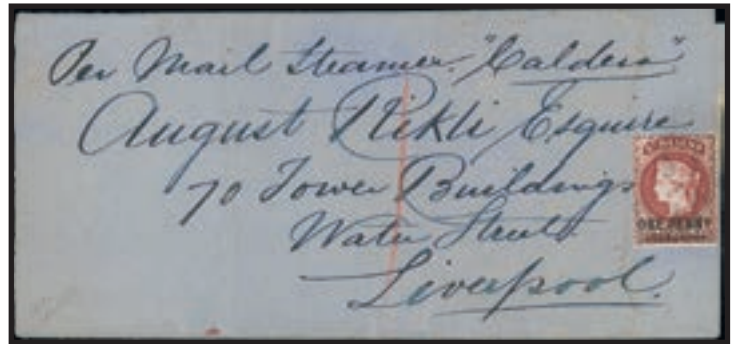 Per Mail Steamer "Caldera"
August Rikli Esquire
70 Tower Buildings
Water Street
Liverpool.
ST HELENA
ONE PENNY